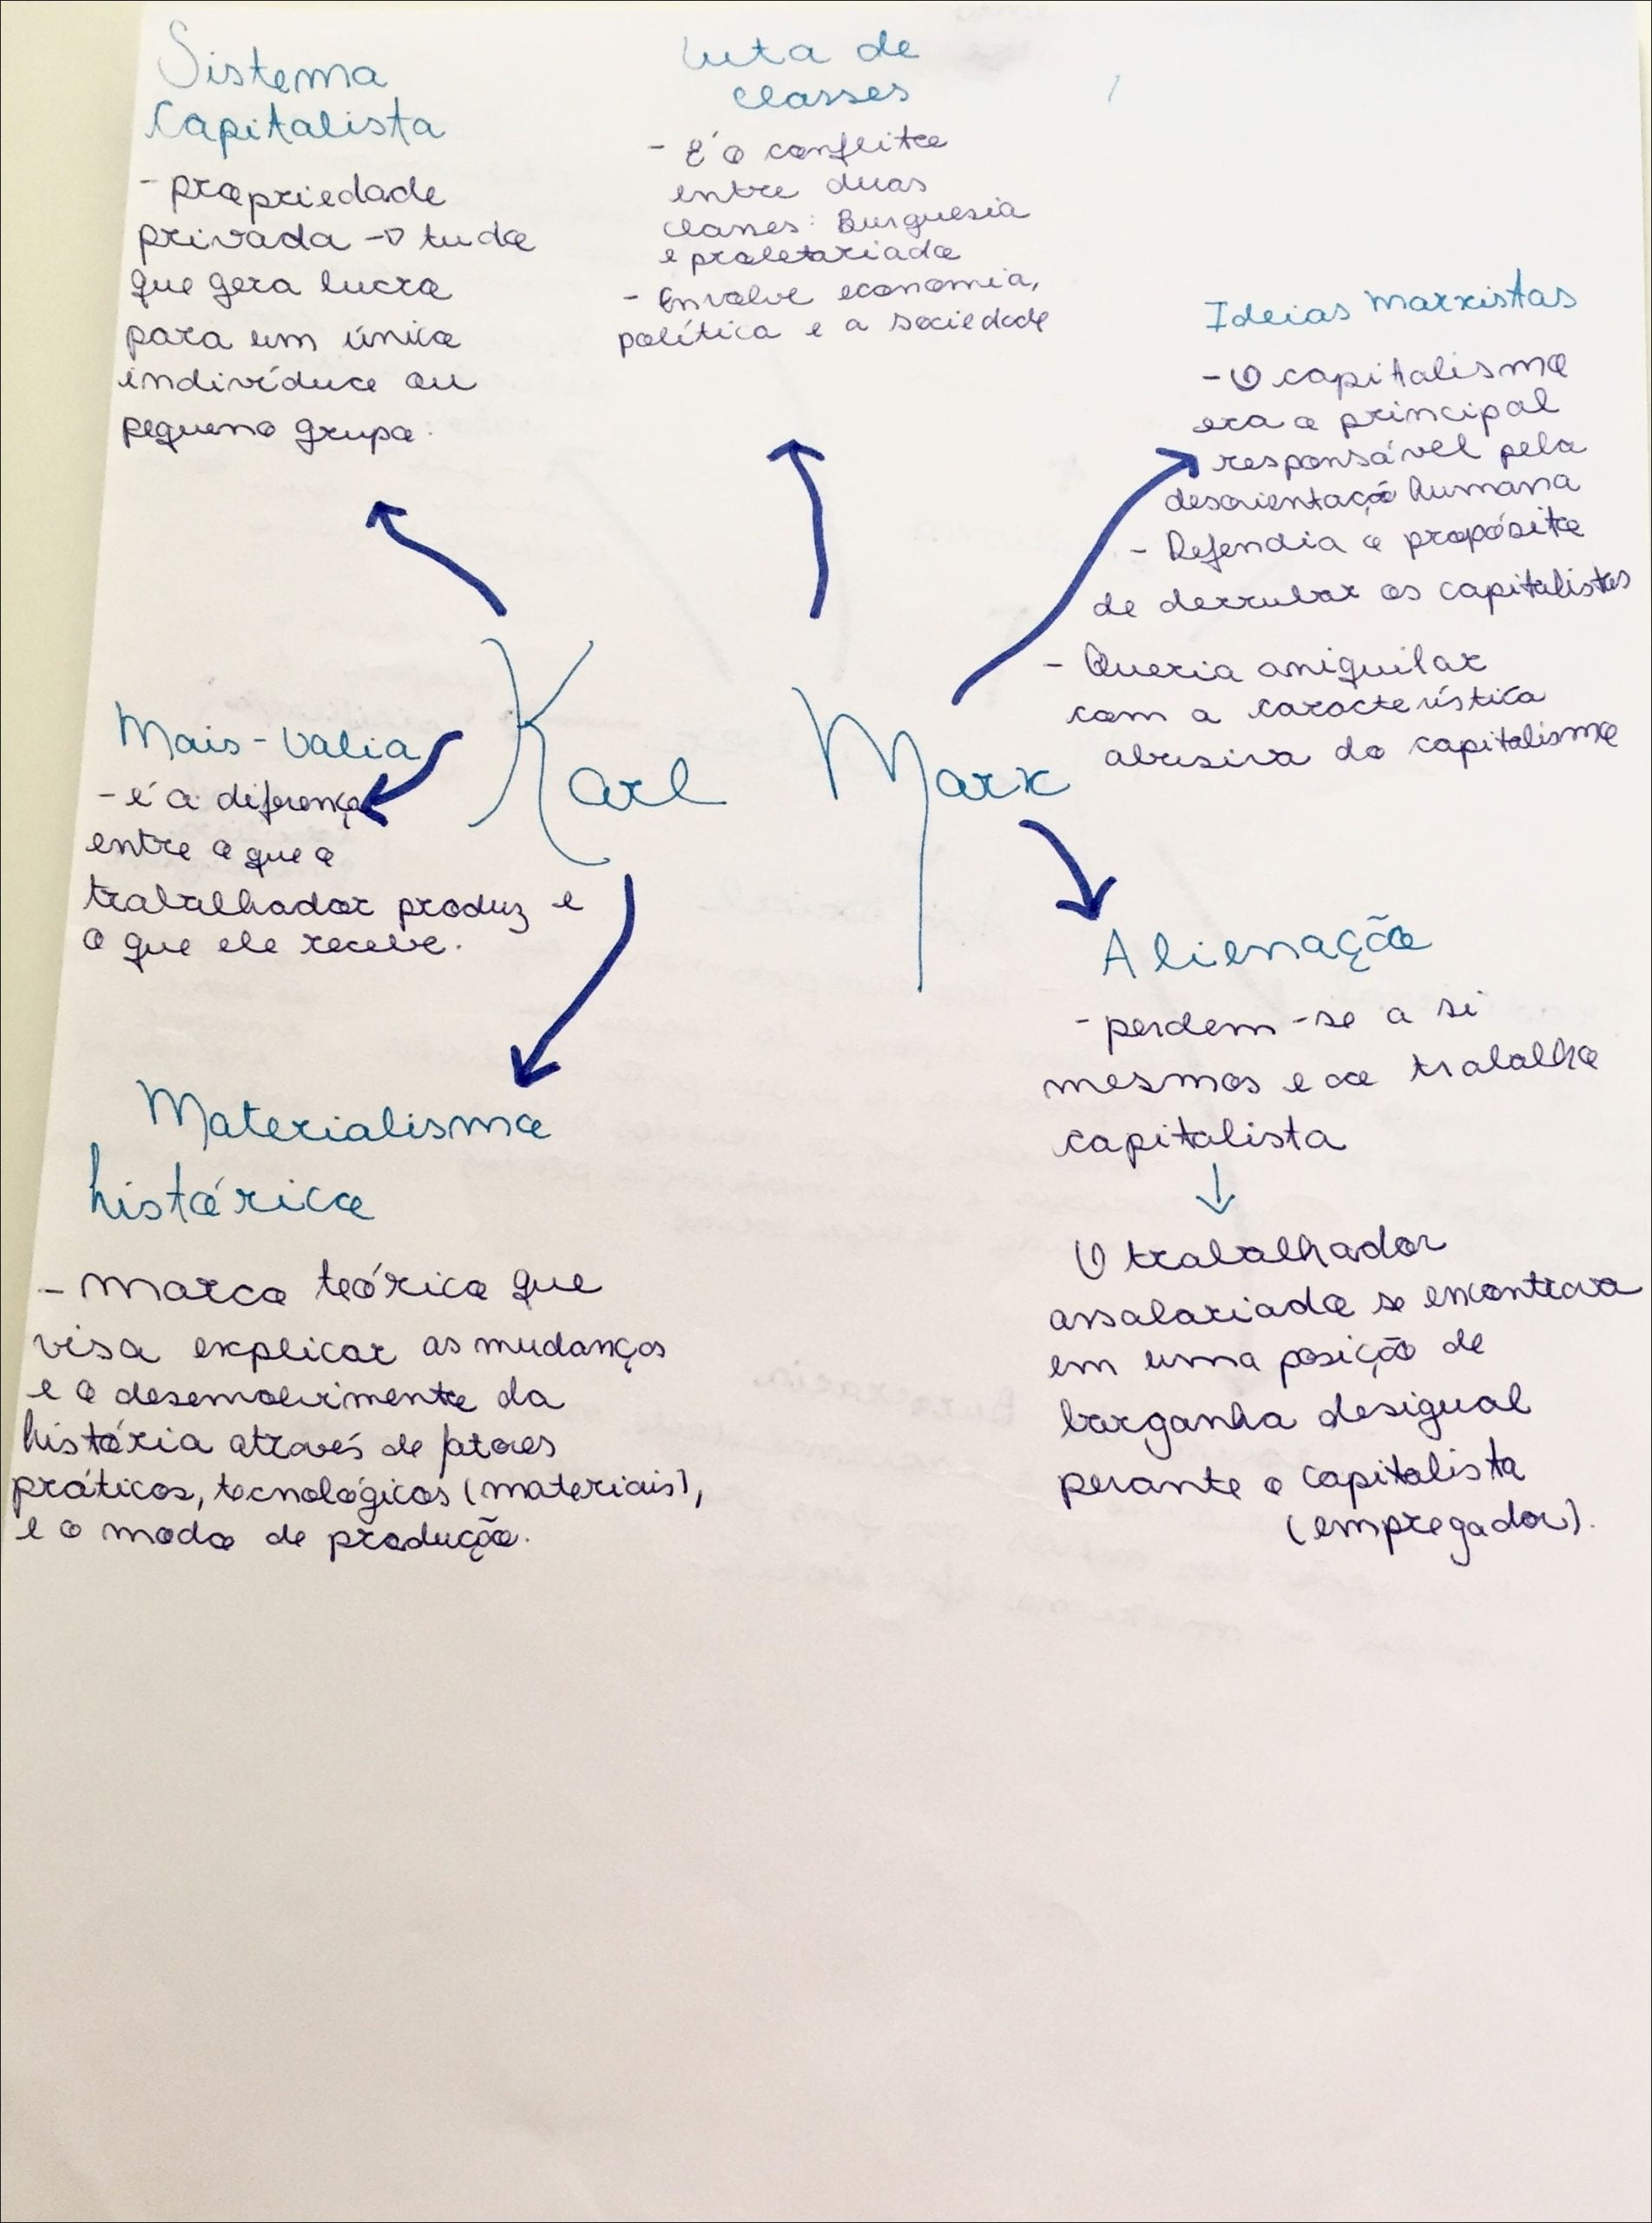 Sistema
Capitalista
- propriedade
privada -> tudo
que gera lucro
para um único
indivíduo ou
pequeno grupo.
Luta de
classes
- É o conflito
entre duas
classes: Burguesia
e proletariado
- Envolve economia,
política e a sociedade
Ideias Marxistas
- O capitalismo
era o principal
responsável pela
desorientação humana
- Defendia o propósito
de derrubar os capitalistas
- Queria aniquilar
com a característica
abusiva do capitalismo
Karl Marx
Mais-Valia
- é a diferença
entre o que o
trabalhador produz e
o que ele recebe.
Materialismo
histórico
- Marco teórico que
visa explicar as mudanças
e o desenvolvimento da
história através de fatores
práticos, tecnológicos (materiais),
e o modo de produção.
Alienação
- perdem-se a si
mesmos e ao trabalho
capitalista
↓
O trabalhador
assalariado se encontrava
em uma posição de
barganha desigual
perante o capitalista
(empregador).